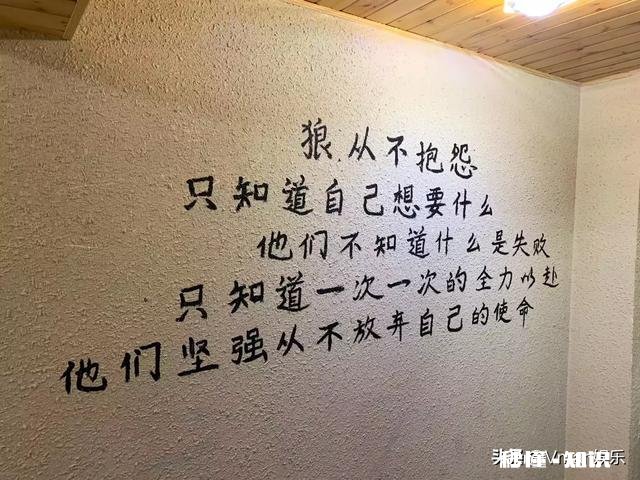 狼从不抱怨
只知道自己想要什么
他们不知道什么是失败
只知道一次一次的全力以赴
他们坚强从不放弃自己的使命
秒懂-知识